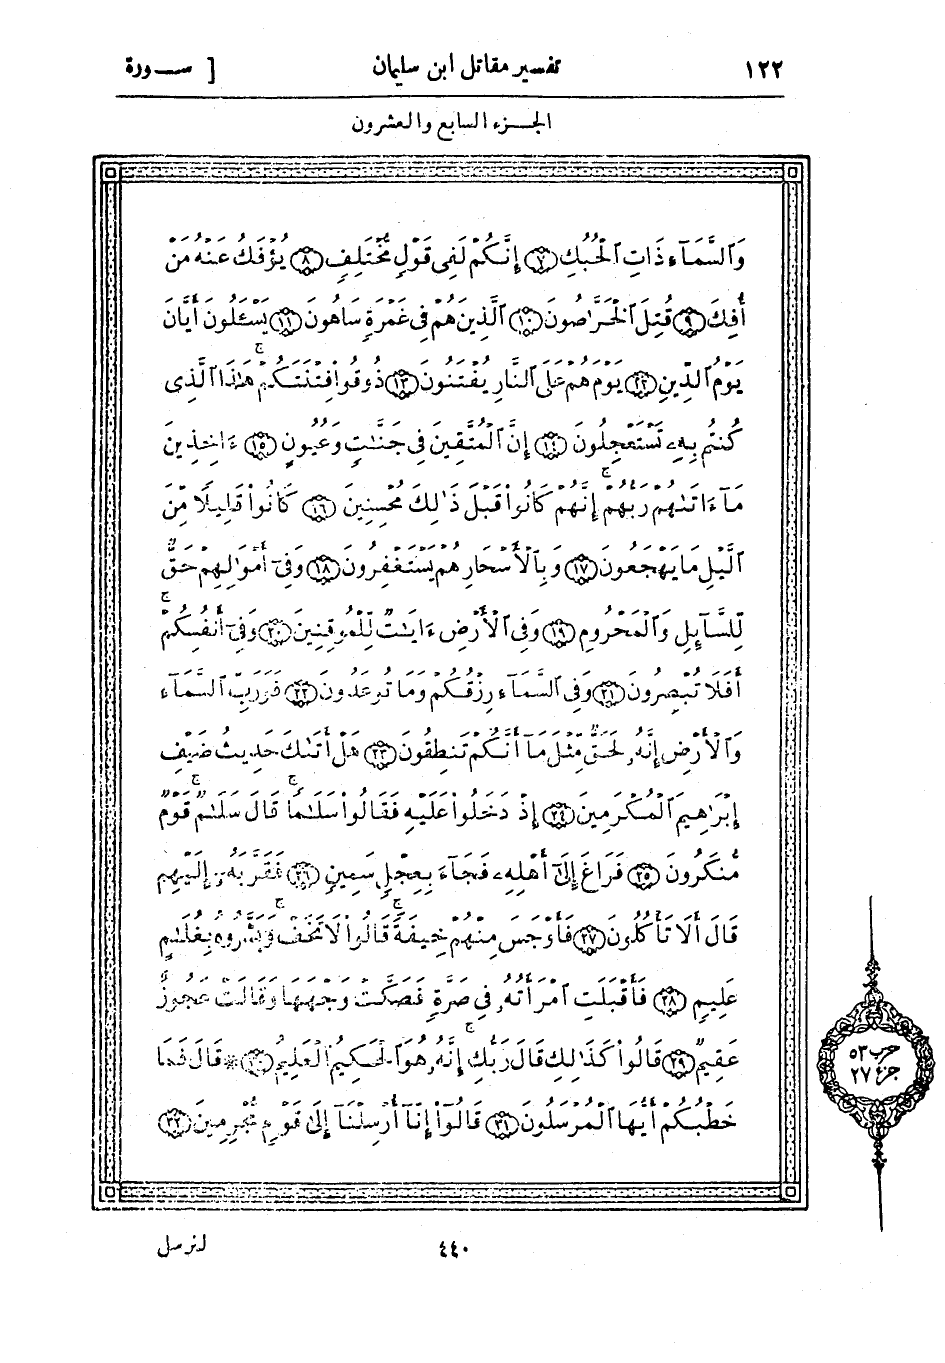 ١٢٢ تفسير مقاتل ابن سليمان [ ســورة
الجـزء السابع والعشرون
وَٱلسَّمَآءِ ذَاتِ ٱلْحُبُكِ ٧ إِنَّكُمْ لَفِى قَوْلٍ مُّخْتَلِفٍ ٨ يُؤْفَكُ عَنْهُ مَنْ
أُفِكَ ٩ قُتِلَ ٱلْخَرَّٰصُونَ ١٠ ٱلَّذِينَ هُمْ فِى غَمْرَةٍ سَاهُونَ ١١ يَسْـَٔلُونَ أَيَّانَ
يَوْمُ ٱلدِّينِ ١٢ يَوْمَ هُمْ عَلَى ٱلنَّارِ يُفْتَنُونَ ١٣ ذُوقُوا۟ فِتْنَتَكُمْ ۚ هَٰذَا ٱلَّذِى
كُنتُم بِهِۦ تَسْتَعْجِلُونَ ١٤ إِنَّ ٱلْمُتَّقِينَ فِى جَنَّٰتٍ وَعُيُونٍ ١٥ ءَاخِذِينَ
مَآ ءَاتَىٰهُمْ رَبُّهُمْ ۚ إِنَّهُمْ كَانُوا۟ قَبْلَ ذَٰلِكَ مُحْسِنِينَ ١٦ كَانُوا۟ قَلِيلًا مِّنَ
ٱلَّيْلِ مَا يَهْجَعُونَ ١٧ وَبِٱلْأَسْحَارِ هُمْ يَسْتَغْفِرُونَ ١٨ وَفِىٓ أَمْوَٰلِهِمْ حَقٌّ
لِّلسَّآئِلِ وَٱلْمَحْرُومِ ١٩ وَفِى ٱلْأَرْضِ ءَايَٰتٌ لِّلْمُوقِنِينَ ٢٠ وَفِىٓ أَنفُسِكُمْ ۚ
أَفَلَا تُبْصِرُونَ ٢١ وَفِى ٱلسَّمَآءِ رِزْقُكُمْ وَمَا تُوعَدُونَ ٢٢ فَوَرَبِّ ٱلسَّمَآءِ
وَٱلْأَرْضِ إِنَّهُۥ لَحَقٌّ مِّثْلَ مَآ أَنَّكُمْ تَنطِقُونَ ٢٣ هَلْ أَتَىٰكَ حَدِيثُ ضَيْفِ
إِبْرَٰهِيمَ ٱلْمُكْرَمِينَ ٢٤ إِذْ دَخَلُوا۟ عَلَيْهِ فَقَالُوا۟ سَلَٰمًا ۖ قَالَ سَلَٰمٌ قَوْمٌ
مُّنكَرُونَ ٢٥ فَرَاغَ إِلَىٰٓ أَهْلِهِۦ فَجَآءَ بِعِجْلٍ سَمِينٍ ٢٦ فَقَرَّبَهُۥٓ إِلَيْهِمْ
قَالَ أَلَا تَأْكُلُونَ ٢٧ فَأَوْجَسَ مِنْهُمْ خِيفَةً ۖ قَالُوا۟ لَا تَخَفْ ۖ وَبَشَّرُوهُ بِغُلَٰمٍ
عَلِيمٍ ٢٨ فَأَقْبَلَتِ ٱمْرَأَتُهُۥ فِى صَرَّةٍ فَصَكَّتْ وَجْهَهَا وَقَالَتْ عَجُوزٌ
عَقِيمٌ ٢٩ قَالُوا۟ كَذَٰلِكِ قَالَ رَبُّكِ ۖ إِنَّهُۥ هُوَ ٱلْحَكِيمُ ٱلْعَلِيمُ ٣٠ * قَالَ فَمَا
خَطْبُكُمْ أَيُّهَا ٱلْمُرْسَلُونَ ٣١ قَالُوٓا۟ إِنَّآ أُرْسِلْنَآ إِلَىٰ قَوْمٍ مُّجْرِمِينَ ٣٢
حزب ٥٣
جزء ٢٧
٤٤٠ لنرسل